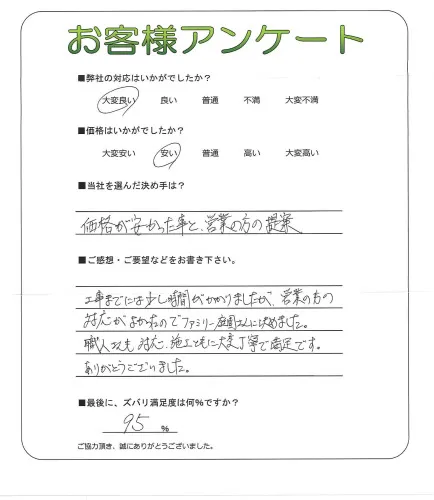 お客様アンケート
■弊社の対応はいかがでしたか？
大変良い 良い 普通 不満 大変不満
■価格はいかがでしたか？
大変安い 安い 普通 高い 大変高い
■当社を選んだ決め手は？
価格が安かった事と、営業の方の提案
■ご感想・ご要望などをお書き下さい。
工事までには少し時間がかかりましたが、営業の方の
対応がよかったのでファミリー庭園さんに決めました。
職人さんも対応、施工ともに大変丁寧で満足です。
ありがとうございました。
■最後に、ズバリ満足度は何％ですか？
95 %
ご協力頂き、誠にありがとうございました。